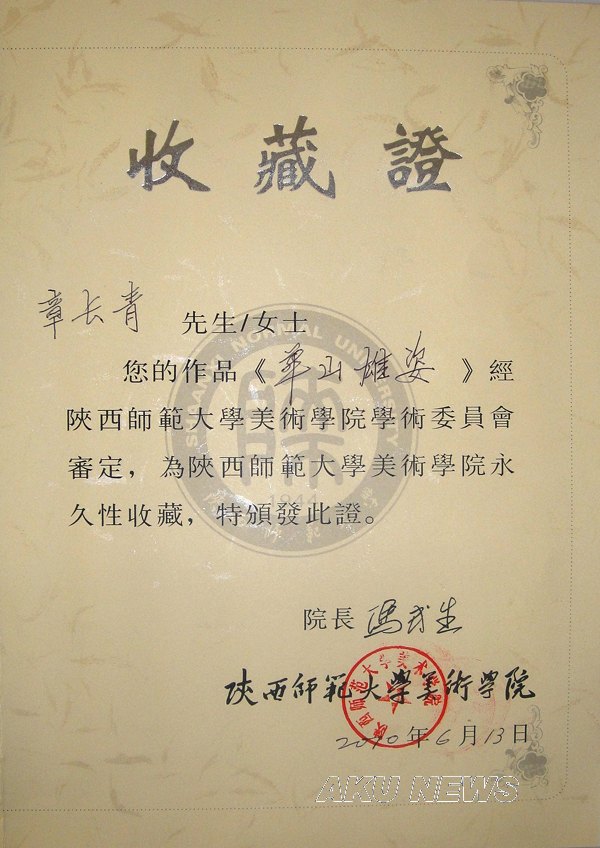 收藏證
章长青 先生/女士
您的作品《華山雄姿》經
陝西師範大學美術學院學術委員會
審定，為陝西師範大學美術學院永
久性收藏，特頒發此證。
SHAANXI NORMAL UNIVERSITY
1944
院長
陝西師範大學美術學院
陕西师范大学美术学院
2010年6月13日
AKU NEWS